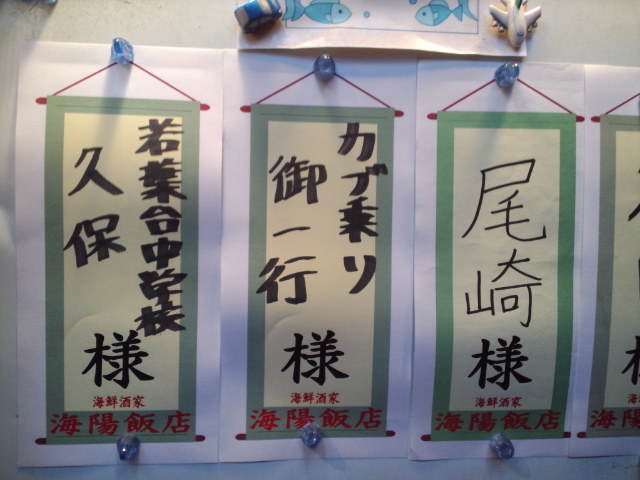 若葉台中学校
久保
様
海鮮酒家
海陽飯店
カブ乗り
御一行
様
海鮮酒家
海陽飯店
尾崎
様
海鮮酒家
海陽飯店